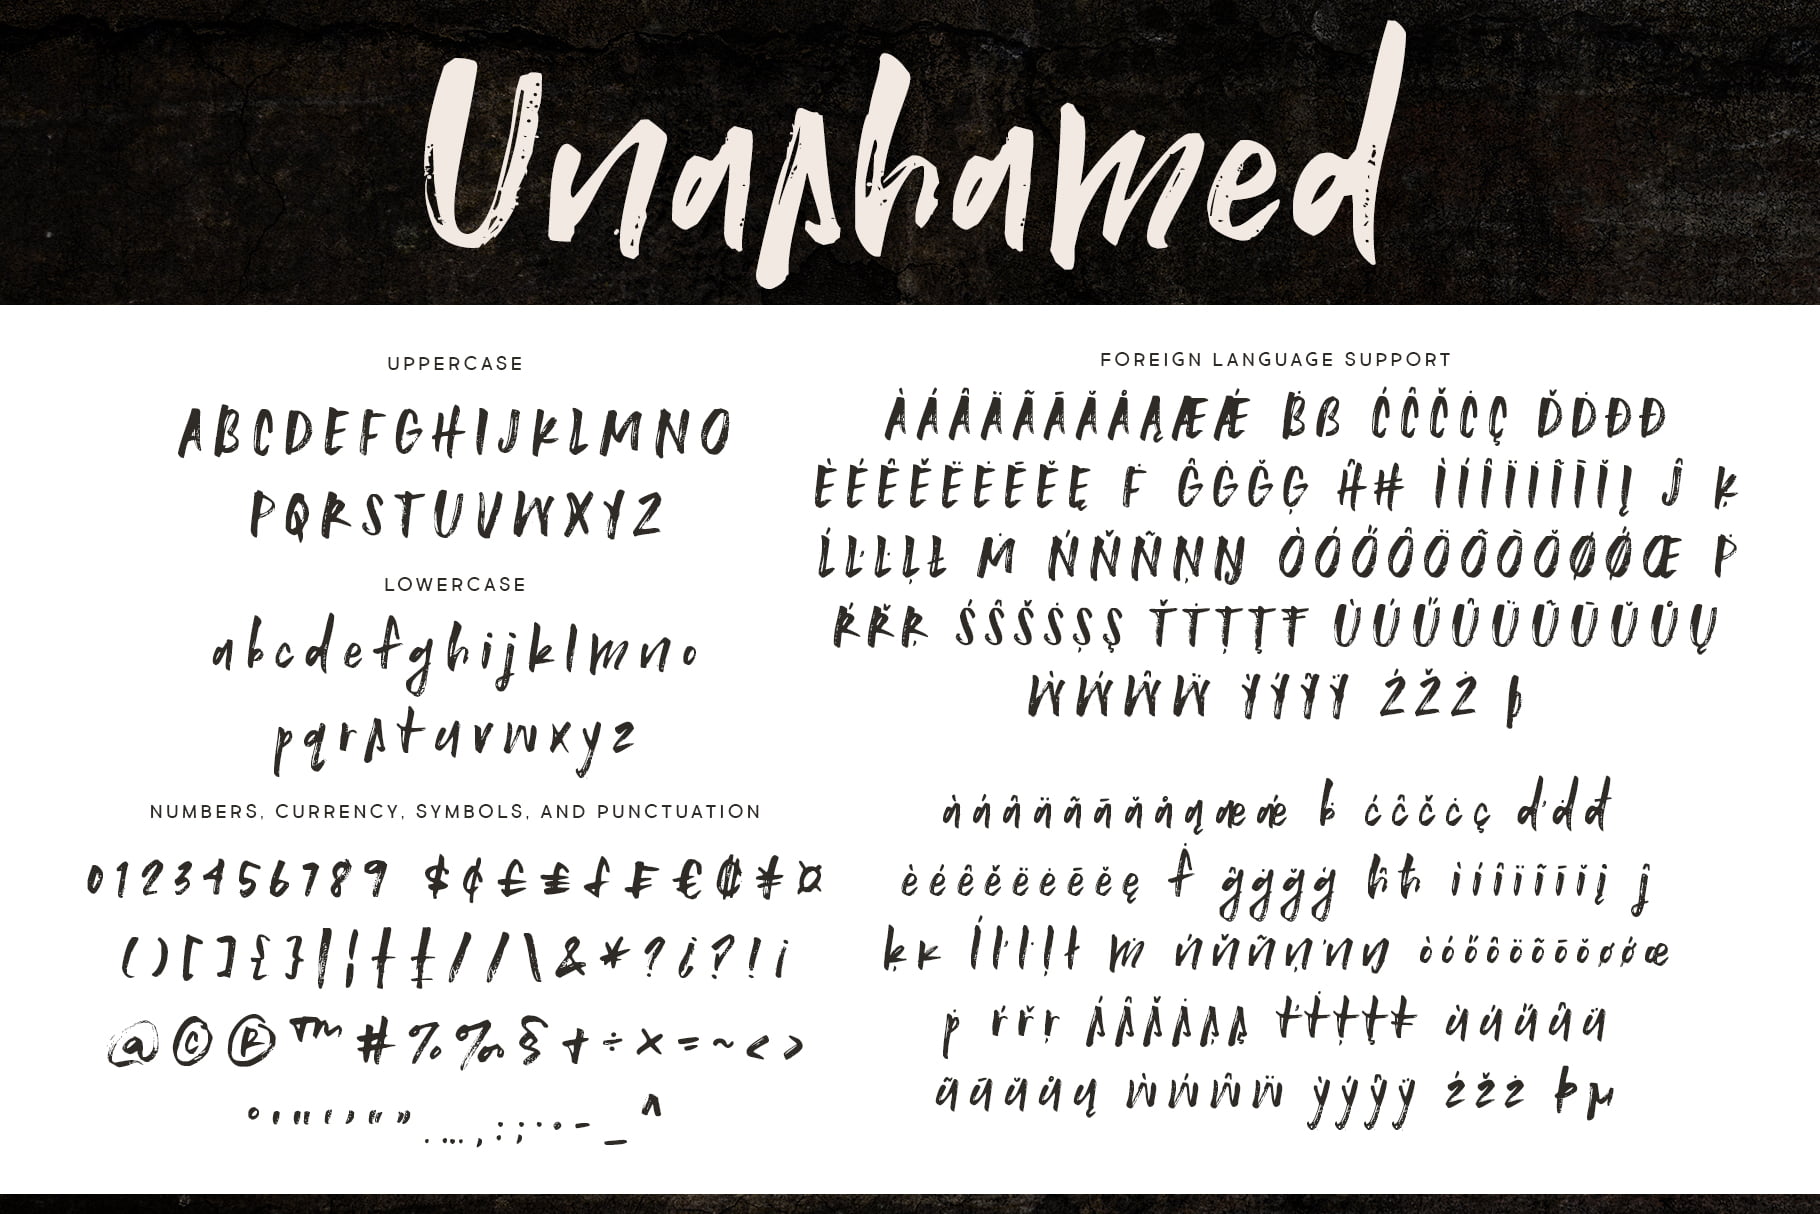 Unashamed
UPPERCASE
ABCDEFGHIJKLMNO
PQRSTUVWXYZ
LOWERCASE
abcdefghijklmno
pqrstuvwxyz
NUMBERS, CURRENCY, SYMBOLS, AND PUNCTUATION
0123456789 $¢£₤ƒ₣€₡¥¤
()[]{}|¦†‡/⁄\&*?¿?!¡
@©®™#%‰§+÷×=~<>
°'"‘’“”».…,:;·•-_^
FOREIGN LANGUAGE SUPPORT
ÀÁÂÄÃĀĂÅĄÆǼ Ḃß ĆĈČĊÇ ĎḊĐÐ
ÈÉÊĚËĖĒĔĘ Ḟ ĜĠĞĢ ĤĦ ÌÍÎÏİĨĪĬĮ Ĵ Ķ
ĹĽĿĻŁ Ṁ ŃŇÑŅŊ ÒÓŐÔÖÕŌŎØǾŒ Ṗ
ŔŘŖ ŚŜŠṠȘŞ ŤṪȚŢŦ ÙÚŰÛÜŨŪŬŮŲ
ẀẂŴẄ ỲÝŶŸ ŹŽŻ Þ
àáâäãāăåąæǽ ḃ ćĉčċç ďḋđ
èéêěëėēĕę ḟ ĝġğģ ĥħ ìíîïĩīĭį ĵ
ķĸ ĺľŀļł ṁ ńňñņŉŋ òóőôöõōŏøǿœ
ṗ ŕřŗ śŝšṡșş ťṫțţŧ ùúűûü
ũūŭůų ẁẃŵẅ ỳýŷÿ źžż þµ